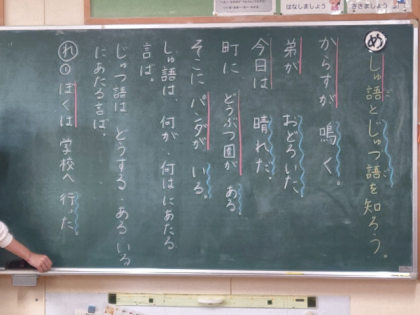 め しゅ語とじゅつ語を知ろう。
からすが 鳴く。
弟が おどろいた。
今日は 晴れた。
町に どうぶつ園が ある。
そこに パンダが いる。
しゅ語は、何が・何はにあたる
言ば。
じゅつ語は どうする・ある いる
にあたる言ば。
れ① ぼくは 学校へ 行った。
はなしましょう
ききましょう